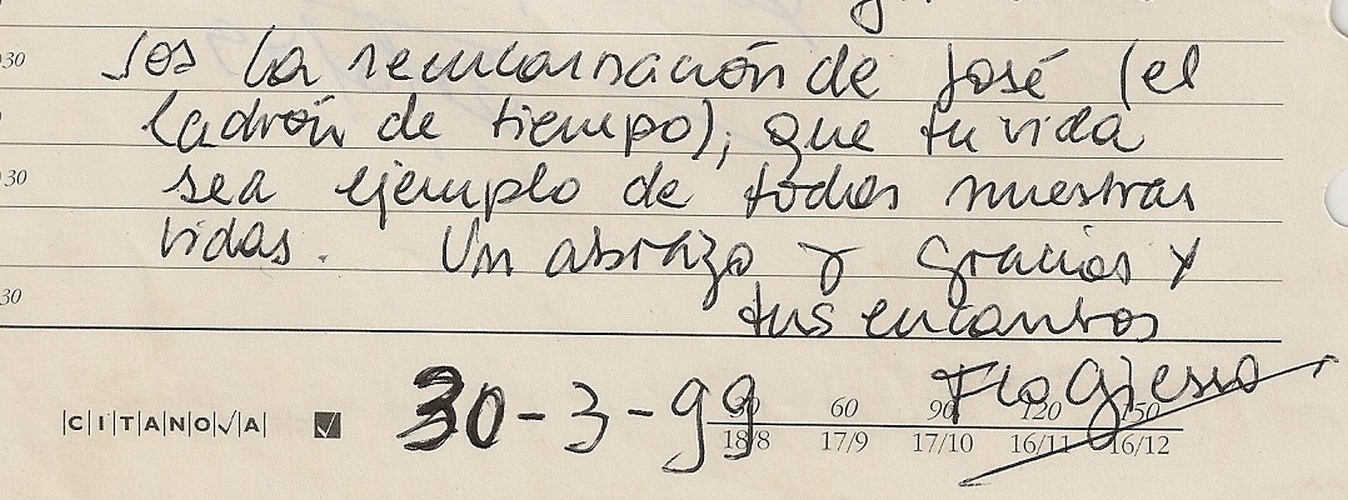 30
sos la reencarnación de José (el
ladrón de tiempo), que tu vida
30
sea ejemplo de todas nuestras
vidas. Un abrazo y gracias x
30
tus encantos
30-3-99
60 90 120 150
CITANOVA
18/8 17/9 17/10 16/11 16/12